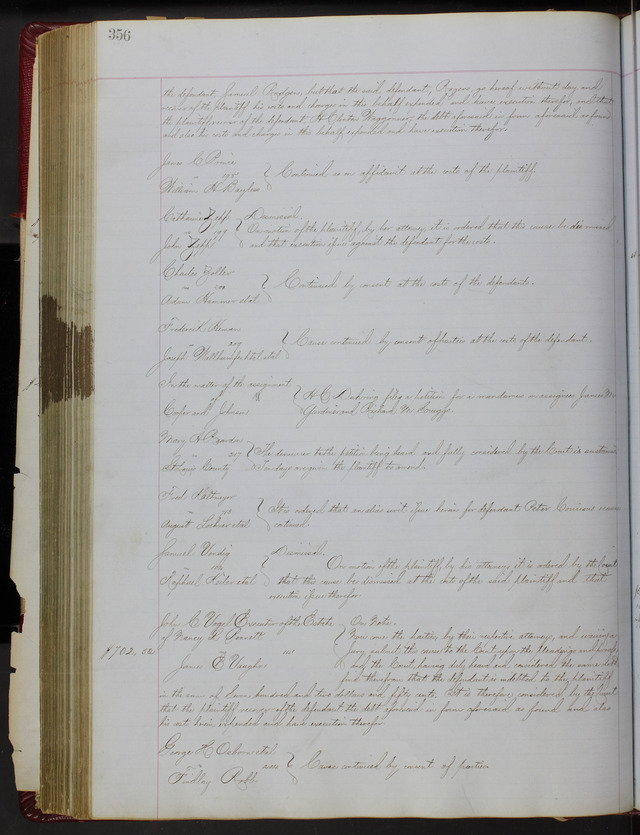 356
the defendant Samuel Rodgers, but that the said defendant, Rodgers, go hereof without day and
recover of the plaintiff his costs and charges in this behalf expended and have execution therefor, and that
the plaintiff recover of the defendant, H Clinton Waggoner, the debt aforesaid in form aforesaid as found
and also his costs and charges in this behalf expended and have execution therefor.
James C Prince
vs
William K Bayless
Continued on affidavit at the costs of the plaintiff.
Catharine Zepp
vs 199
John Zepp
Dismissed.
On motion of the plaintiff, by her attorney, it is ordered that this cause be dismissed
and that execution issue against the defendant for the costs.
Charles Zoller
vs
Adam Hammer et al
Continued by consent at the costs of the defendants.
Frederick
vs
Joseph et al
Cause continued by consent of parties at the costs of the defendant.
In the matter of the assignment
of
and Johnson
H C files a petition for a mandamus on assignees James M
and Richard M
Mary A
vs 207
St Louis County
The demurrer to the petition being heard and fully considered by the Court is sustained
Ten days are given the plaintiff to amend.
Fred
vs
August et al
It is ordered that an alias writ issue herein for defendant Peter cause
continued.
Samuel
vs
Raphael et al
Dismissed.
On motion of the plaintiff, by his attorney, it is ordered by the Court
that this cause be dismissed at the cost of the said plaintiff and that
execution issue therefor.
John C Vogel Executor of the Estate
of Nancy
vs
James E Vaughn
On Note.
Now come the parties by their respective attorneys, and waiving a
jury submit the cause to the Court upon the pleadings and proofs
and the Court having duly heard and considered the same doth
find therefrom that the defendant is indebted to the plaintiff
$702.50
in the sum of Seven hundred and two dollars and fifty cents. It is therefore considered by the Court
that the plaintiff recover of the defendant the debt aforesaid in form aforesaid as found and also
his costs herein expended and have execution therefor.
George H Osborn et al
vs
Findlay Robb
Cause continued by consent of parties.